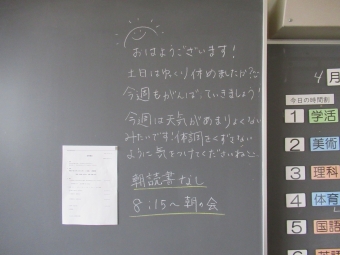 おはようございます!
土日はゆっくり休めましたか?
今週もがんばっていきましょう!
今週は天気があまりよくない
みたいです!体調をくずさない
ように気をつけてくださいね
朝読書なし
8:15〜朝の会
4月
今日の時間割
1 学活
2 美術
3 理科
4 体育
5 国語
6 英語